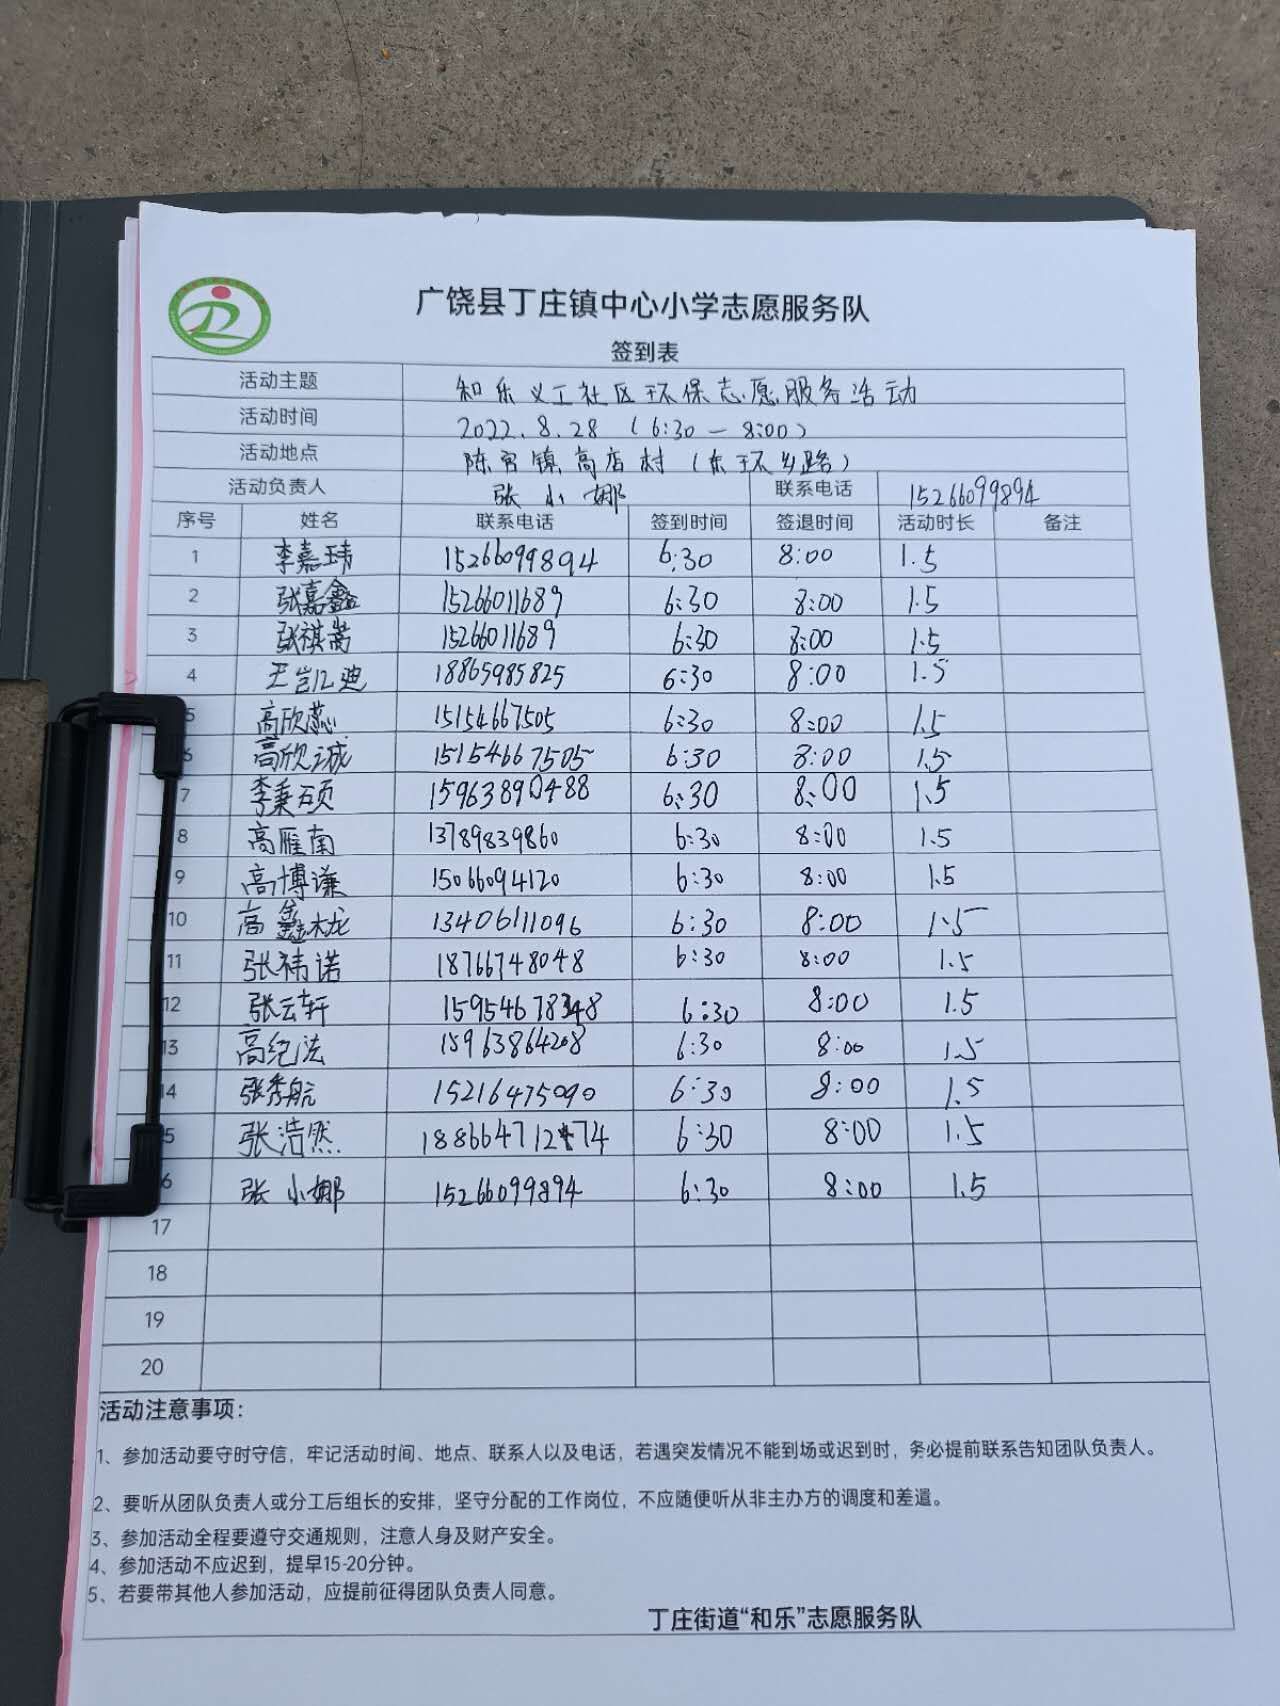 广饶县丁庄镇中心小学志愿服务队
签到表
活动主题 和乐义工社区环保志愿服务活动
活动时间 2022.8.28 (6:30-8:00)
活动地点 陈官镇高店村(东环乡路)
活动负责人 张小娜 联系电话 15266099894
序号 姓名 联系电话 签到时间 签退时间 活动时长 备注
1 李嘉玮 15266099894 6:30 8:00 1.5
2 张嘉鑫 15266011689 6:30 8:00 1.5
3 张祺嵩 15266011689 6:30 8:00 1.5
4 王岂迪 18865985825 6:30 8:00 1.5
5 高欣蕊 15154667505 6:30 8:00 1.5
6 高欣诚 15154667505 6:30 8:00 1.5
7 李秉硕 15963890488 6:30 8:00 1.5
8 高雁南 13789839860 6:30 8:00 1.5
9 高博谦 15066094120 6:30 8:00 1.5
10 高鑫龙 13406111096 6:30 8:00 1.5
11 张祎诺 18766748048 6:30 8:00 1.5
12 张云轩 15954678348 6:30 8:00 1.5
13 高纪法 15963864208 6:30 8:00 1.5
14 张秀航 15216475090 6:30 8:00 1.5
5 张浩然 6:30 8:00 1.5
6 张小娜 15266099894 6:30 8:00 1.5
17
18
19
20
活动注意事项：
1、参加活动要守时守信，牢记活动时间、地点、联系人以及电话，若遇突发情况不能到场或迟到时，务必提前联系告知团队负责人。
2、要听从团队负责人或分工后组长的安排，坚守分配的工作岗位，不应随便听从非主办方的调度和差遣。
3、参加活动全程要遵守交通规则，注意人身及财产安全。
4、参加活动不应迟到，提早15-20分钟。
5、若要带其他人参加活动，应提前征得团队负责人同意。
丁庄街道“和乐”志愿服务队